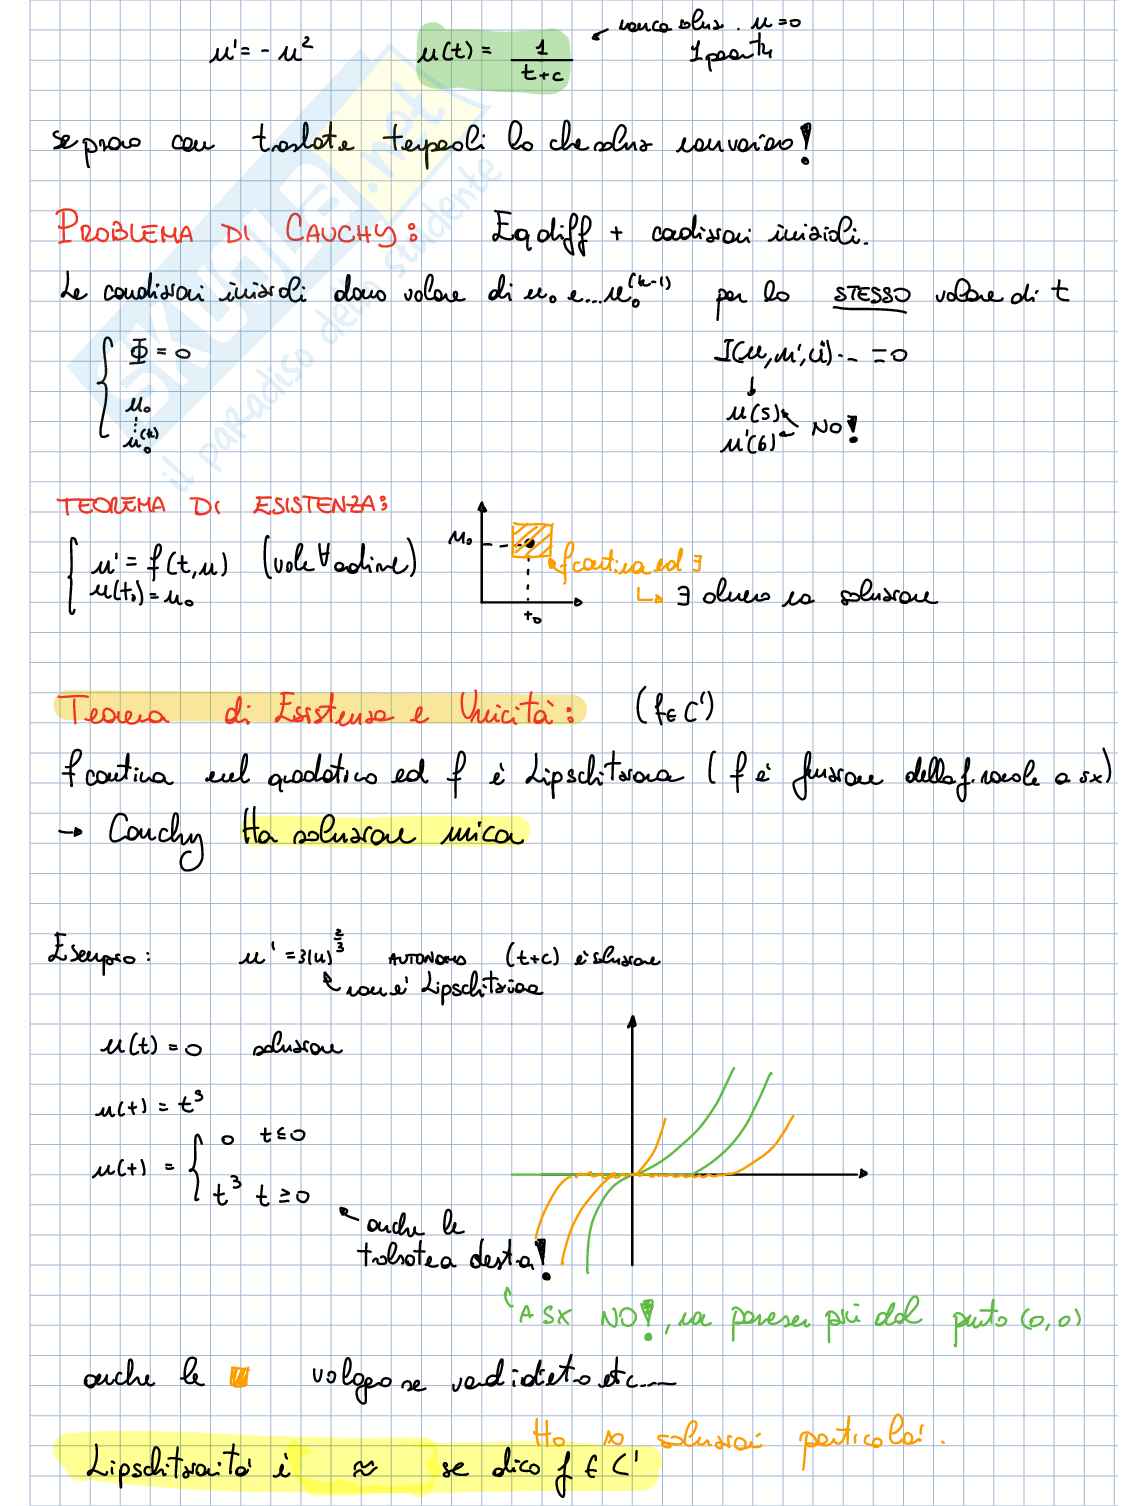 u' = - u²   u(t) = 1/(t+c)   ← manca soluz. u=0
1 parte
se provo con traslate temporali lo che soluz non variano!
PROBLEMA DI CAUCHY: Eq diff + condizioni iniziali.
Le condizioni iniziali dano valore di u₀ e.... u₀^(k-1) per lo STESSO valore di t
{ Φ = 0   I(u, u', ü) .. = 0
u₀   u(5)
⋮ u₀^(k)   u'(6) ← NO!
TEOREMA DI ESISTENZA:
{ u' = f(t,u)   (vale ∀ ordine)   u₀   f continua ed ∃
u(t₀) = u₀   ↳ ∃ almeno una soluzione
t₀
Teorema di Esistenza e Unicità: (f ∈ C¹)
f continua nel quadratino ed f è Lipschitziana ( f è funzione della f. normale a sx)
→ Cauchy Ha soluzione unica
Esempio: u' = 3(u)^2/3   AUTONOMO   (t+c) è soluzione
↖ non è Lipschitziana
u(t) = 0   soluzione
u(t) = t³
u(t) = { 0   t ≤ 0
t³   t ≥ 0
↖ anche le
traslate a destra!
A SX NO!, non passerei più dal punto (0,0)
anche le volgono se vado indietro etc....
Ho ∞ soluzioni particolari.
Lipschitzianità è ≈ se dico f ∈ C¹
SKUOLA.net
il paradiso dello studente